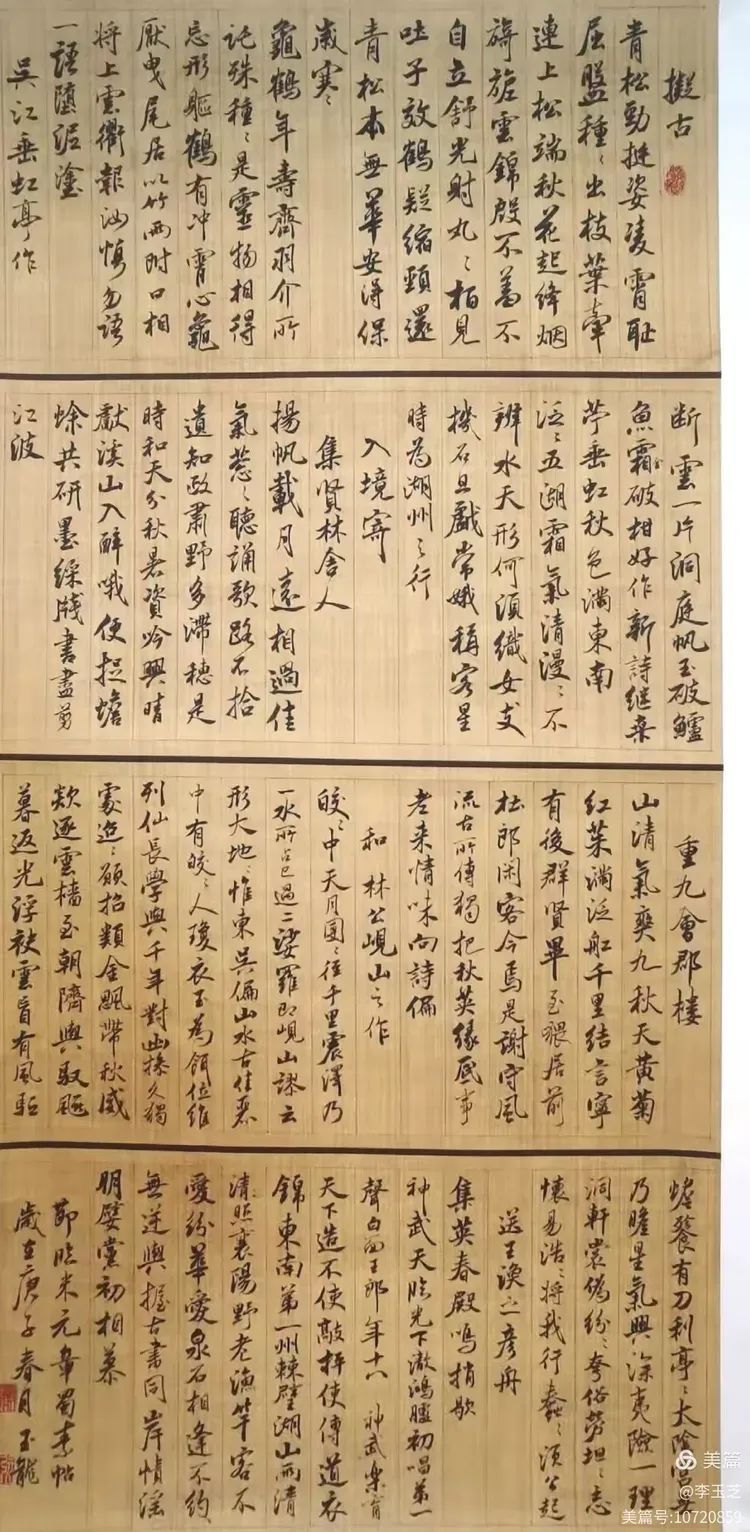 擬古
青松勁挺姿凌霄耻
屈盤種々出枝葉牽
連上松端秋花起绛烟
旖旎雲錦殷不羞不
自立舒光射丸々柏見
吐子效鶴疑縮頸還
青松本無華安得保
歲寒々
龜鶴年壽齊羽介所
託殊種々是靈物相得
忘形軀鶴有冲霄心龜
厭曳尾居以竹兩附口相
將上雲衢報汝慎勿語
一語墮泥塗
吳江垂虹亭作
断雲一片洞庭帆玉破鱸
魚霜破柑好作新詩继桒
苧垂虹秋色满東南
泛々五湖霜氣清漫々不
辨水天形何須織女支
機石且戲常娥稱客星
時為湖州之行
入境寄
集賢林舍人
揚帆載月遠相過佳
氣葱々聽誦歌路不拾
遺知政肅野多滯穗是
時和天分秋暑資吟興晴
獻溪山入醉哦便捉蟾
蜍共研墨綵牋書盡剪
江波
重九會郡樓
山清氣爽九秋天黄菊
红茱满泛船千里結言寧
有後群賢畢至猥居前
杜郎閑客今焉是謝守風
流古所傳獨把秋英缘底事
老来情味向詩偏
和林公峴山之作
皎々中天月團々徑千里震澤乃
一水所占已過二娑羅即峴山謬云
形大地々惟東吳偏山水古佳麗
中有皎々人瓊衣玉為餌位維
列仙長學與千年對幽操久獨
處迢々願招類金飈帶秋威
欻逐雲檣至朝隮與馭飈
暮返光浮袂雲盲有風驅
蟾餮有刀利亭々太陰宫無
乃瞻星氣興深夷險一理
洞軒裳偽纷々夸俗勞坦々忘
懷易浩々將我行蠢々須公起
送王涣之彦舟
集英春殿鳴捎歇
神武天臨光下澈鴻臚初唱第一
聲白面王郎年十八神武樂育
天下造不使敲抨使傳道衣
錦東南第一州棘壁湖山兩清
清照襄陽野老漁竿客不
愛纷華愛泉石相逢不约
無逆與握古書同岸幘淫
朋嬖黨初相慕
節臨米元章蜀素帖
歲在庚子春月玉龍
美篇
@李玉芝
美篇号:10720859